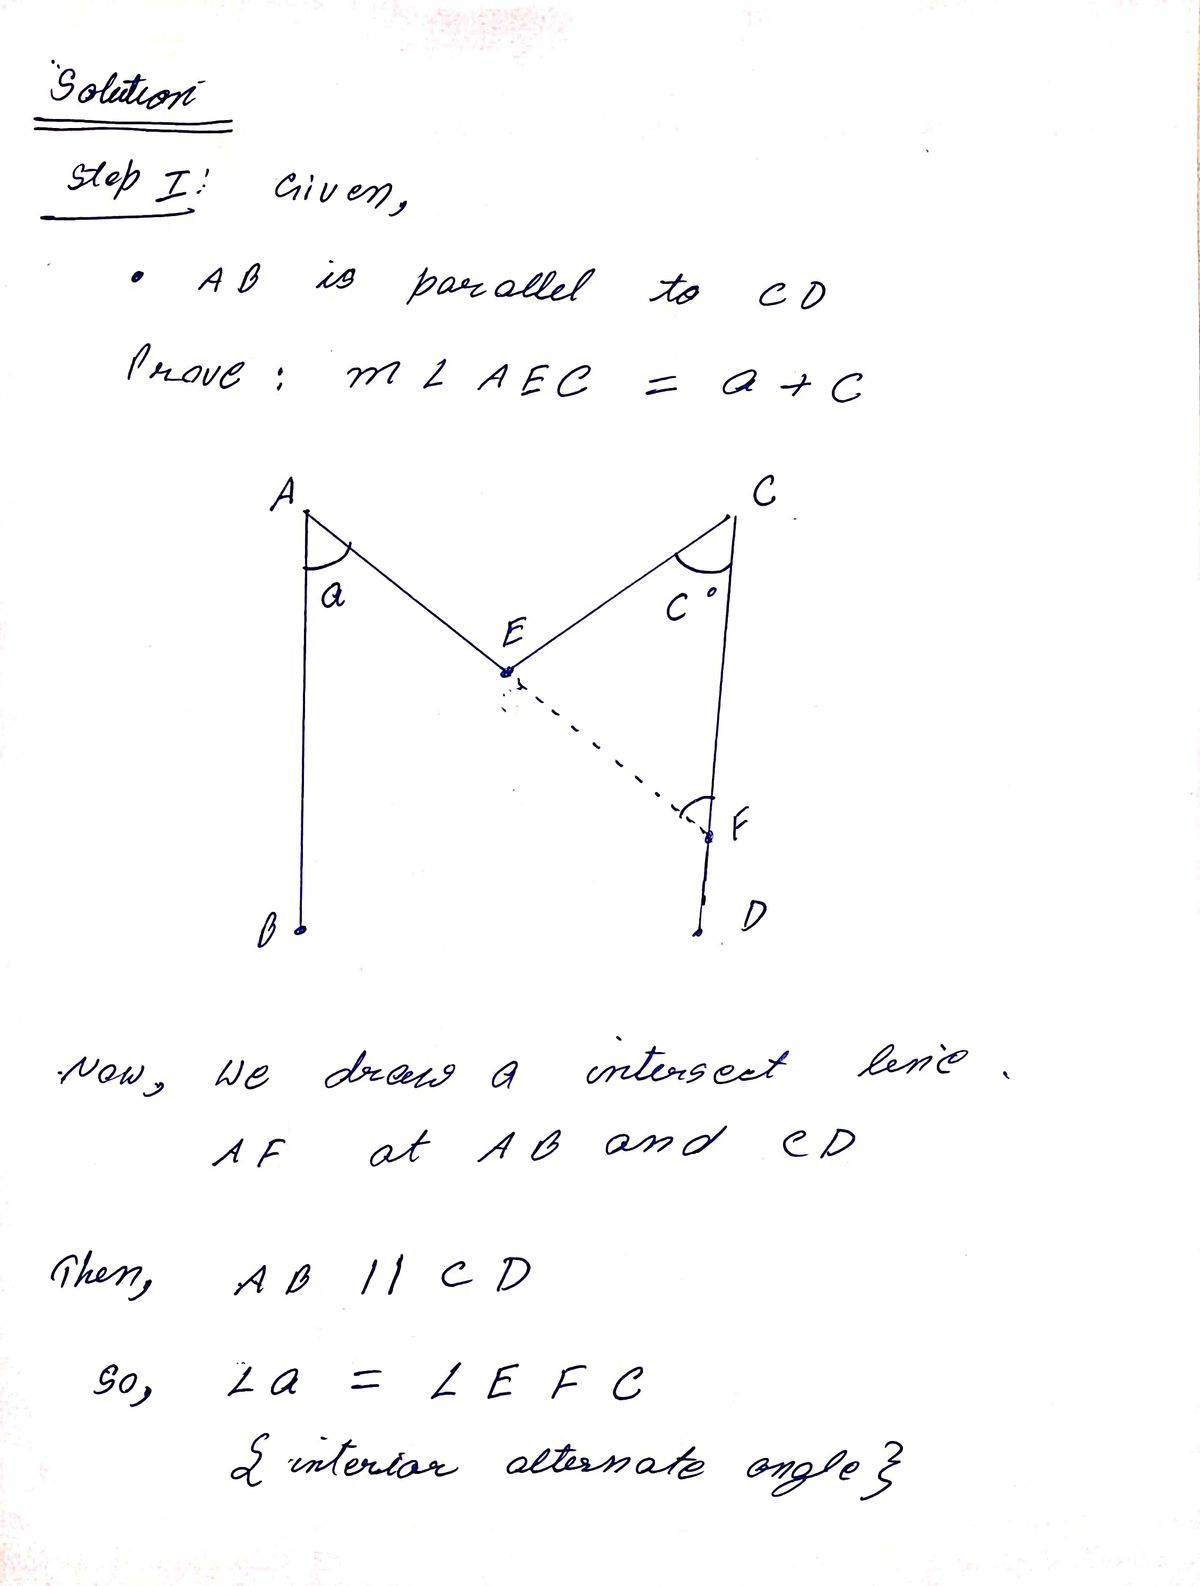 Solution
Step I: Given,
• AB is parallel to CD
Prove: m∠AEC = a + c
A
C
a
c°
E
F
B
D
Now, we draw a intersect line.
AF at AB and CD
Then, AB || CD
So, ∠a = ∠EFC
{interior alternate angle}